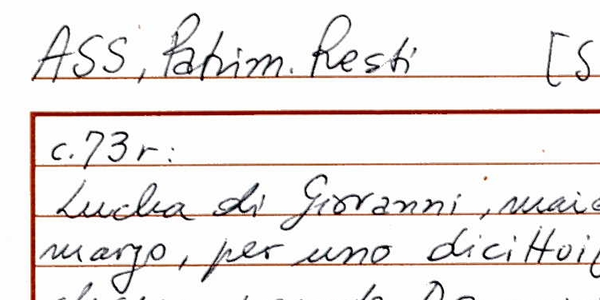 ASS, Patrim. Resti [S
c.73r:
Lucha di Giovanni, mai
margo, per uno dicitto